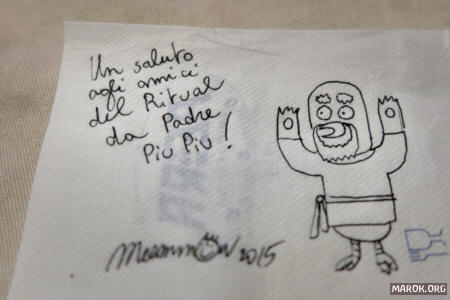 Un saluto
agli amici
del Ritual
da Padre
Piu Piu!
2015
MAROK.ORG